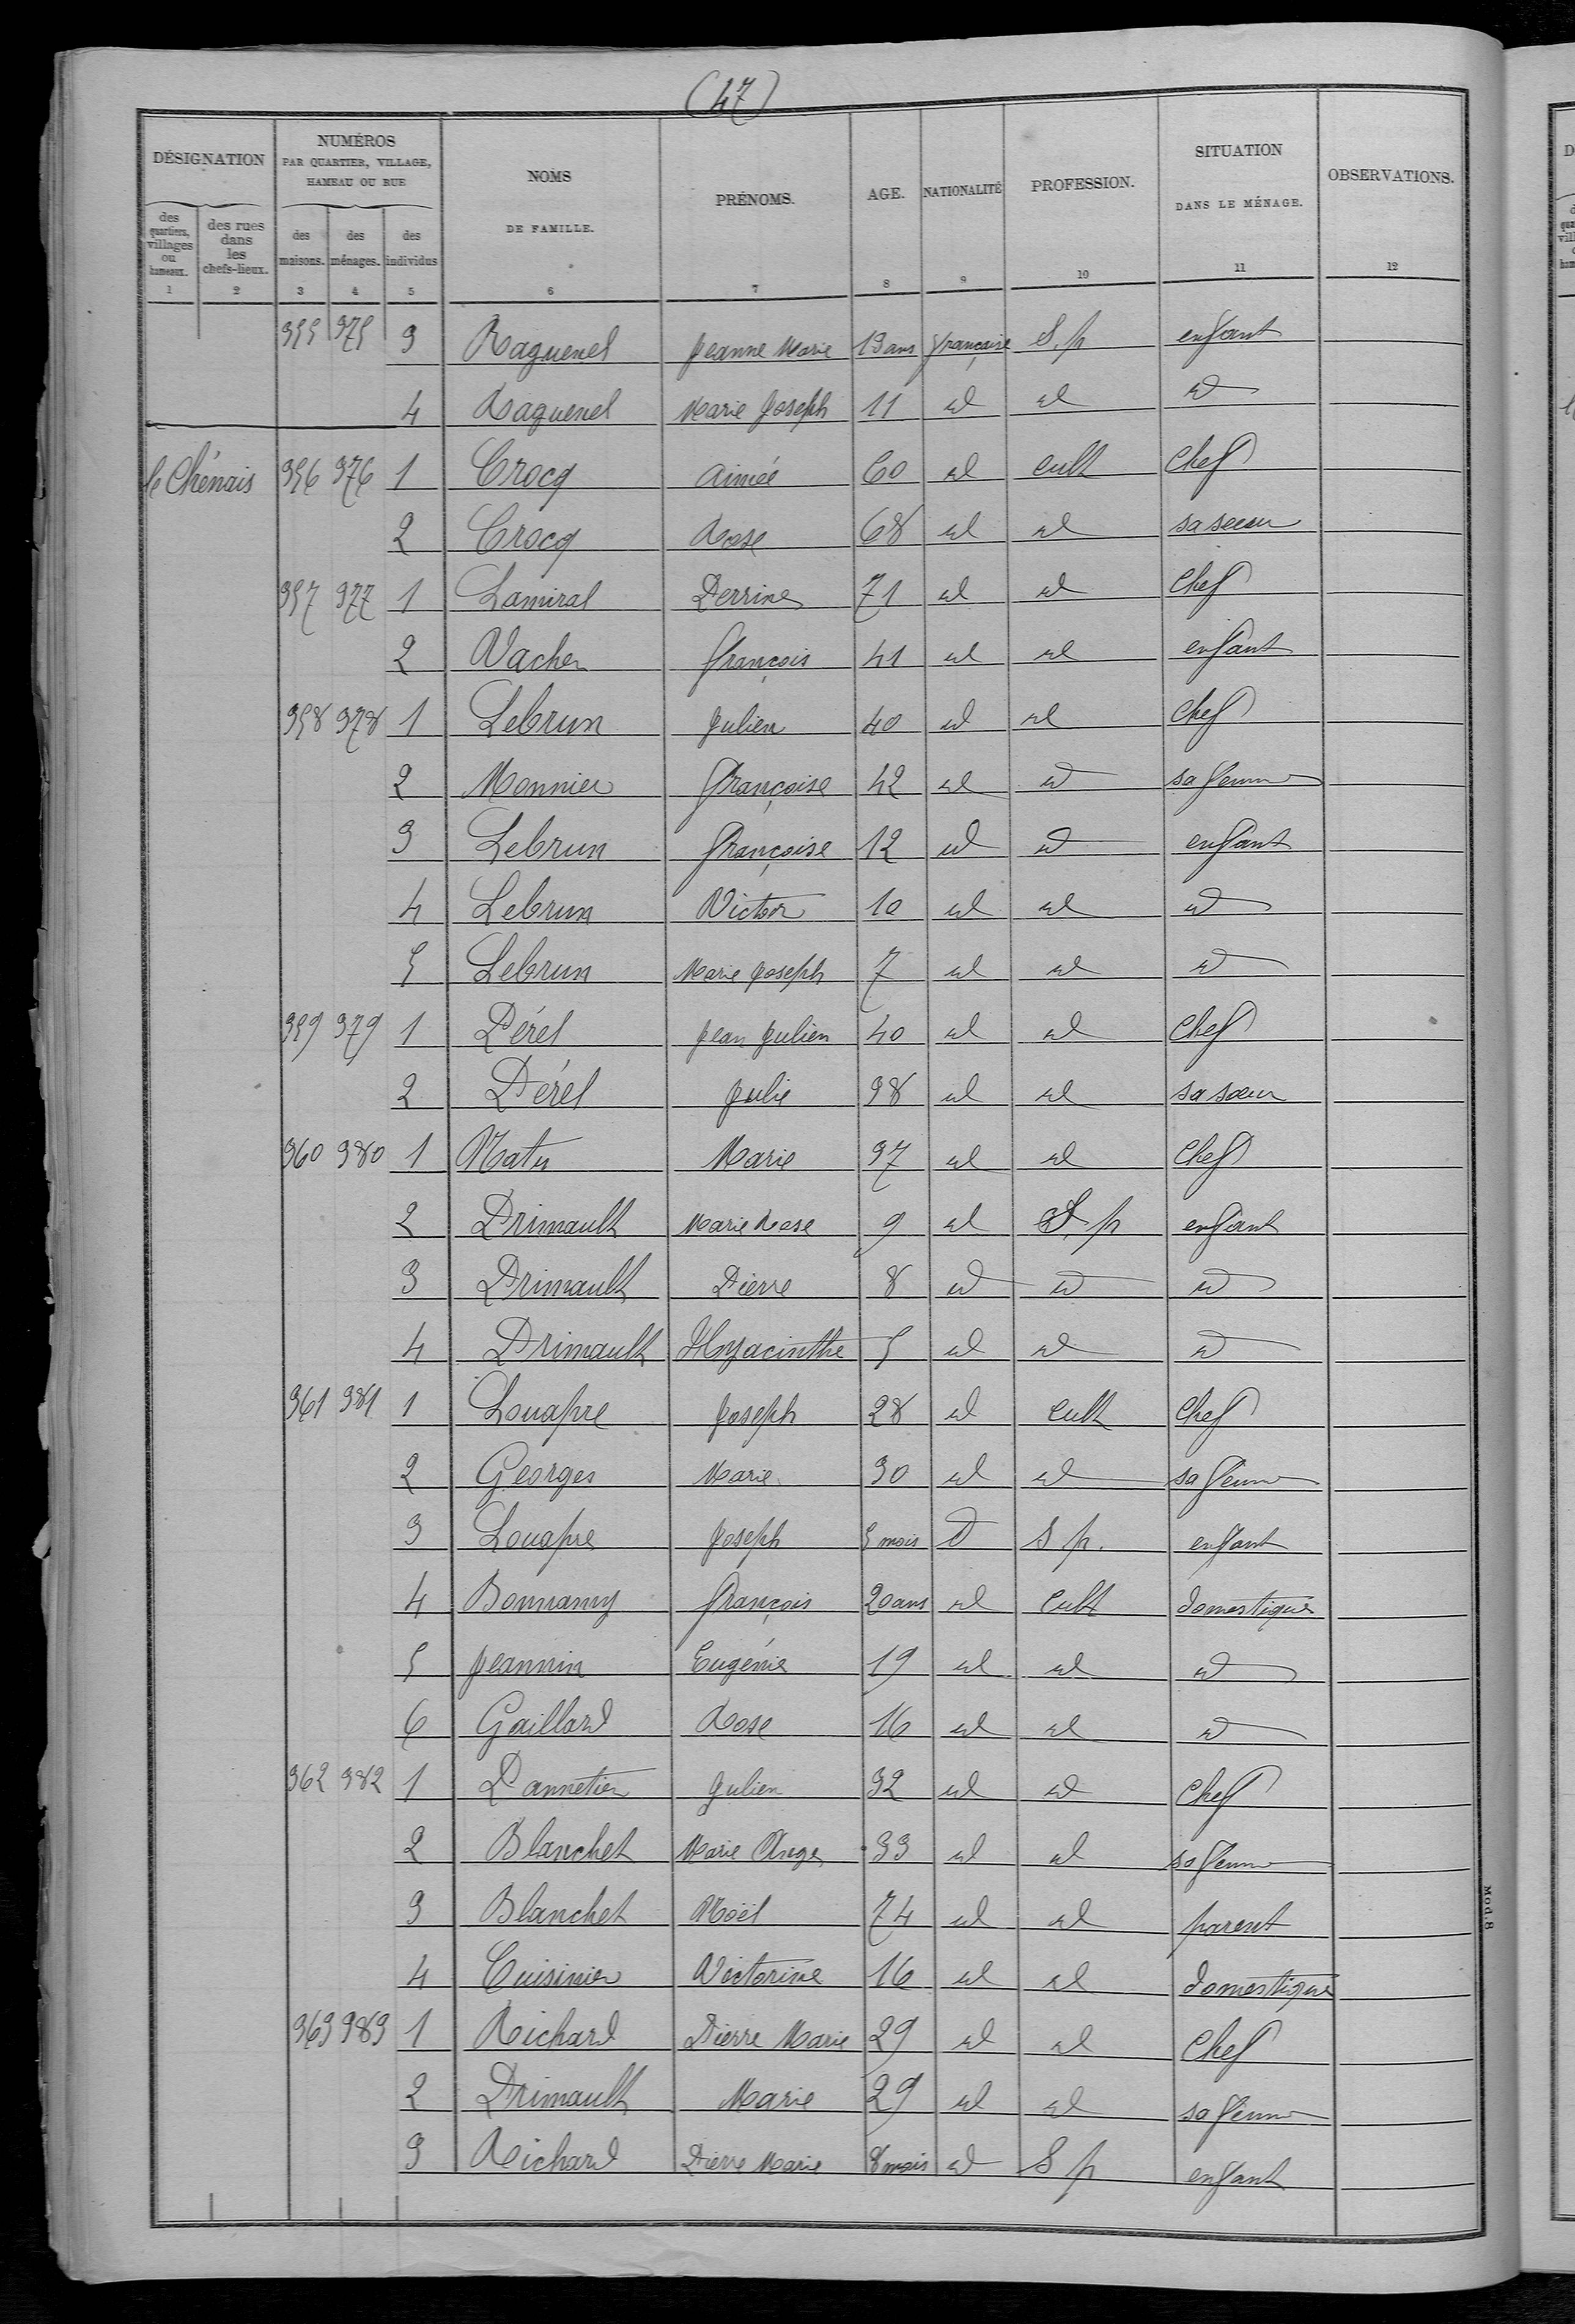 (47)
DÉSIGNATION
NUMÉROS
PAR QUARTIER, VILLAGE,
HAMEAU OU RUE
NOMS
DE FAMILLE.
PRÉNOMS.
AGE.
NATIONALITÉ
PROFESSION.
SITUATION
DANS LE MÉNAGE.
OBSERVATIONS.
des quartiers, villages ou hameaux.
des rues dans les chefs-lieux.
des maisons.
des ménages.
des individus
1 2 3 4 5 6 7 8 9 10 11 12
355 375 3 Raguenel Jeanne Marie 13 ans française S. p enfant
4 Raguenel Marie Joseph 11 id id id
le Chénais 356 376 1 Crocq Aimée 60 id cult chef
2 Crocq Rose 68 id id sa sœur
357 377 1 Lamiral Perrine 71 id id chef
2 Vacher François 41 id id enfant
358 378 1 Lebrun Julien 40 id id chef
2 Monnier Françoise 42 id id sa femme
3 Lebrun Françoise 12 id id enfant
4 Lebrun Victor 10 id id id
5 Lebrun Marie Joseph 7 id id id
359 379 1 Pérel Jean Julien 40 id id chef
2 Pérel Julie 38 id id sa sœur
360 380 1 Matu Marie 37 id id chef
2 Primault Marie Rose 9 id S. p enfant
3 Primault Pierre 8 id id id
4 Primault Hyacinthe 5 id id id
361 381 1 Louapre Joseph 28 id cult chef
2 Georges Marie 30 id id sa femme
3 Louapre Joseph 5 mois d S p. enfant
4 Bonnamy François 20 ans id cult domestique
5 Jeannin Eugénie 19 id id id
6 Gaillard Rose 16 id id id
362 382 1 Pannetier Julien 32 id id chef
2 Blanchet Marie Ange 33 id id sa femme
3 Blanchet Noël 74 id id parent
4 Cuisinier Victorine 16 id id domestique
363 383 1 Richard Pierre Marie 29 id id chef
2 Primault Marie 29 id id sa femme
3 Richard Pierre Marie 8 mois id S p enfant
Mod. 8